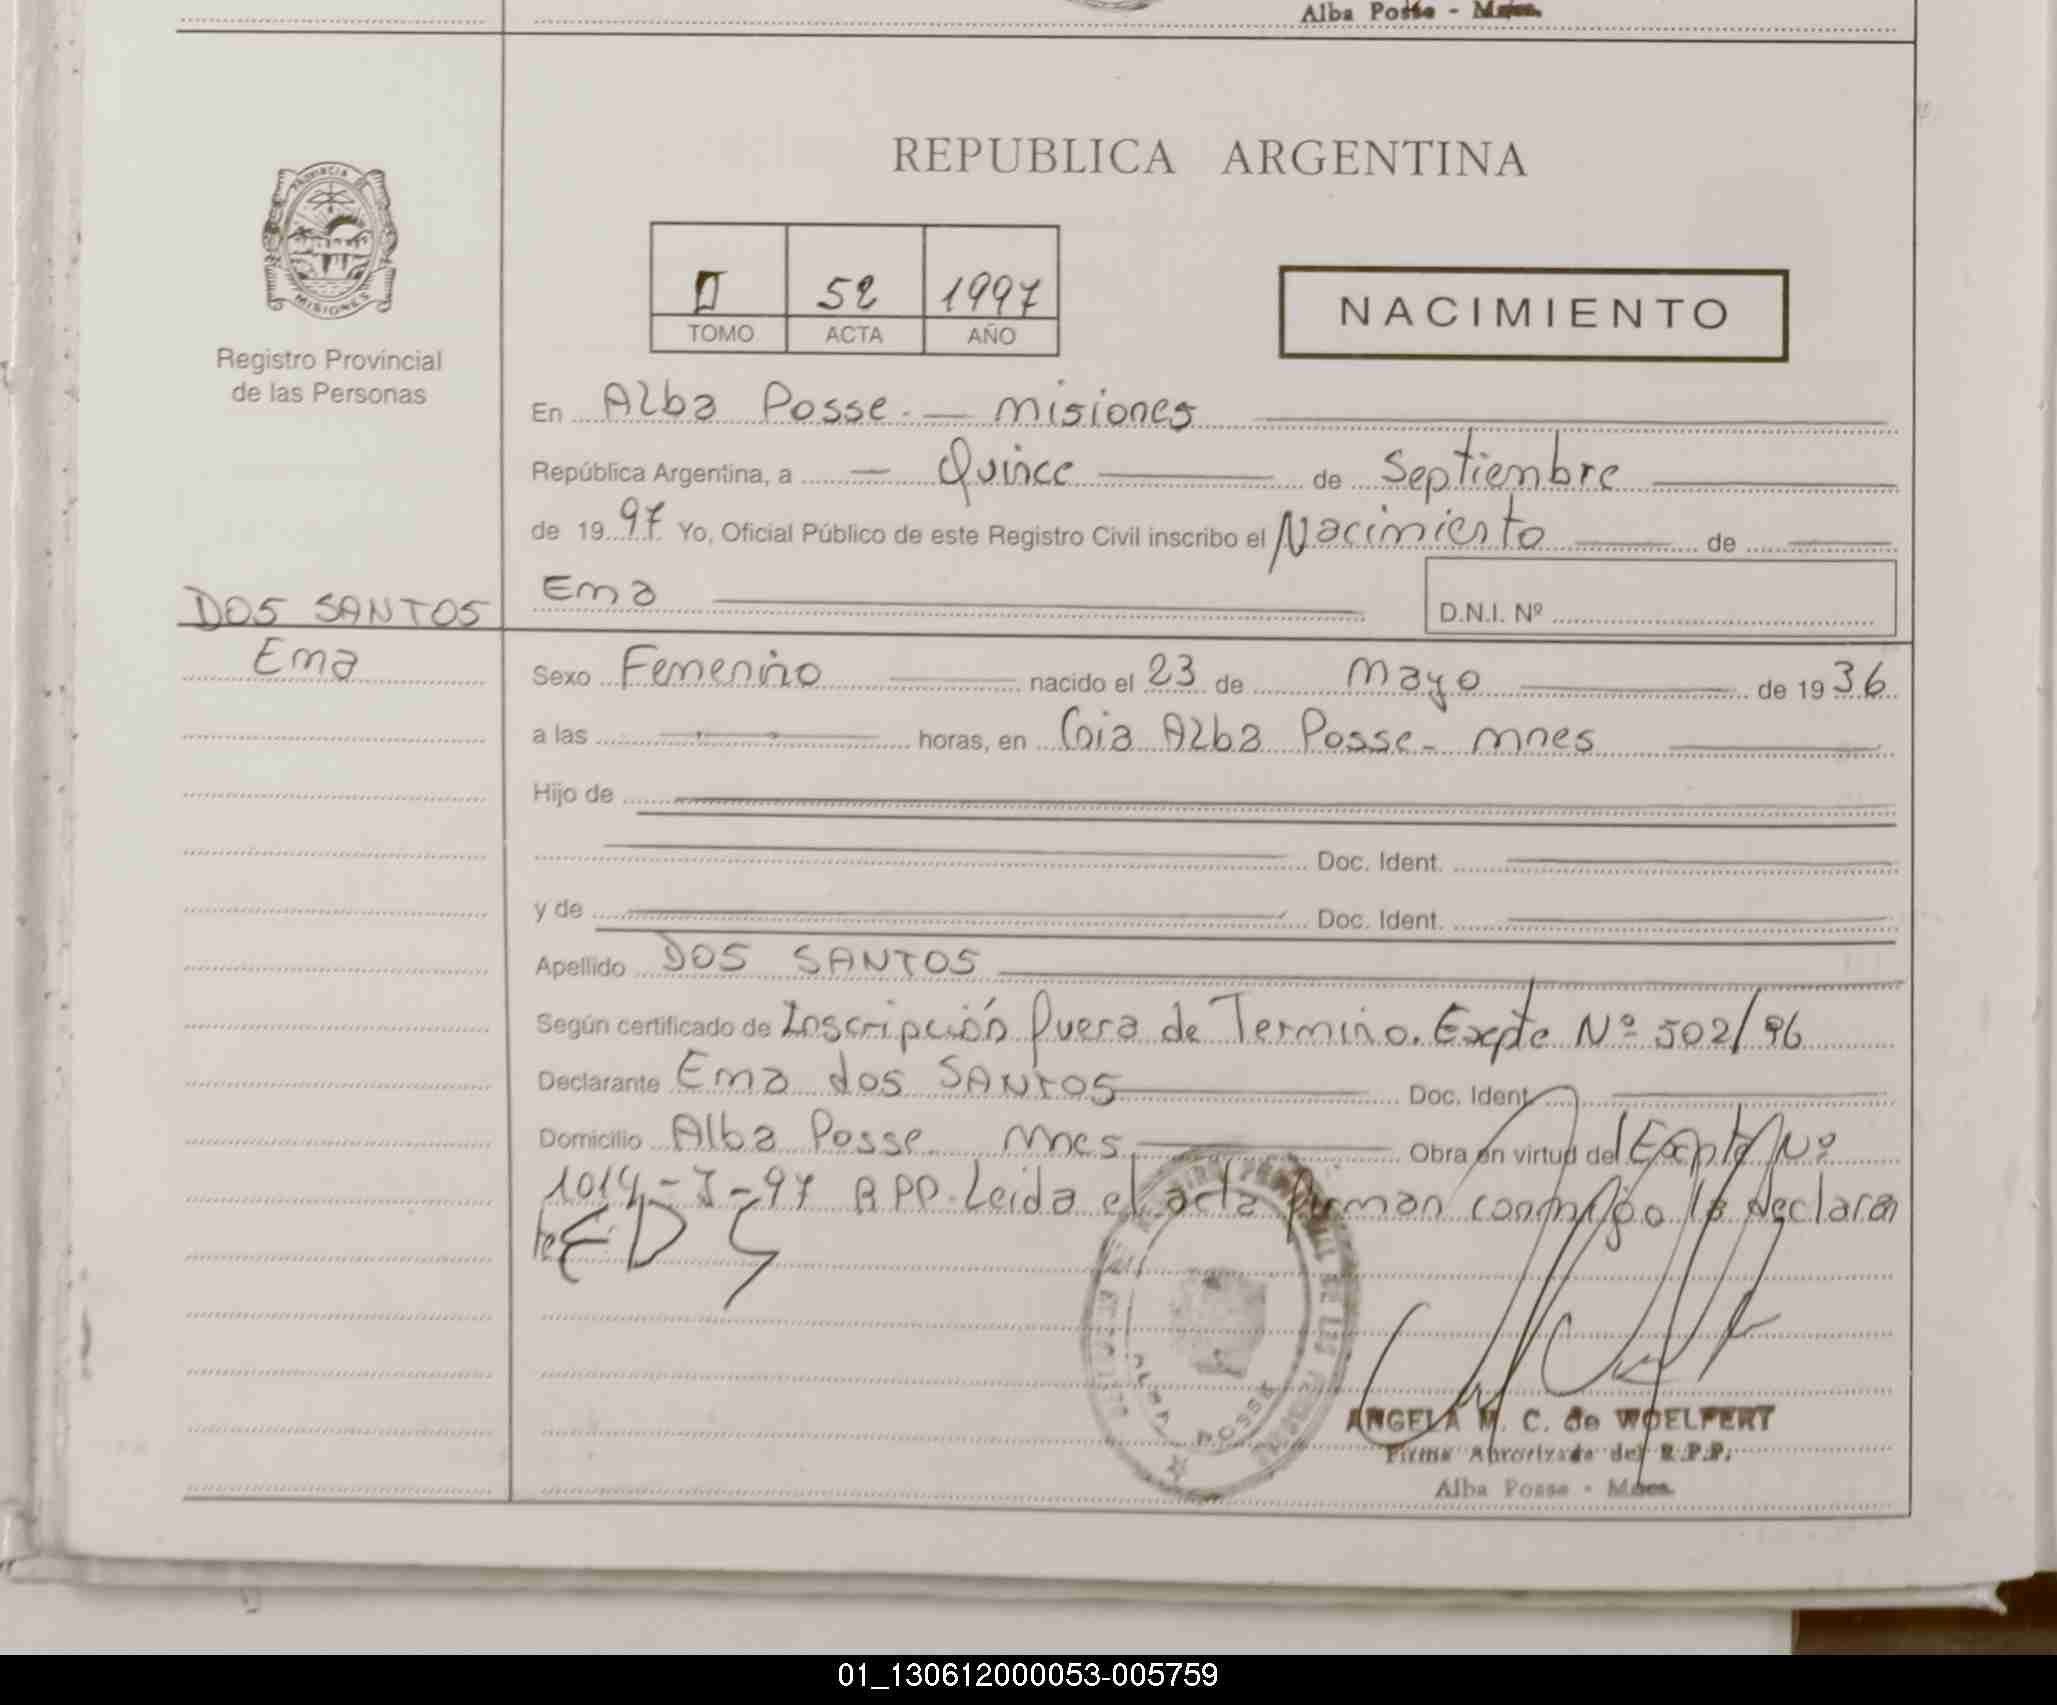 Alba Posse - Mnes.
PROVINCIA DE
MISIONES
Registro Provincial
de las Personas
REPUBLICA ARGENTINA
II 52 1997
TOMO ACTA AÑO
NACIMIENTO
En Alba Posse. — misiones
República Argentina, a — Quince de Septiembre
de 1997 Yo, Oficial Público de este Registro Civil inscribo el Nacimiento de
DOS SANTOS
Ema
Ema
D.N.I. Nº
Sexo Femenino nacido el 23 de mayo de 1936
a las horas, en Cnia Alba Posse - mnes
Hijo de
Doc. Ident.
y de Doc. Ident.
Apellido DOS SANTOS
Según certificado de Inscripción fuera de Termino. Expte Nº 502/96
Declarante Ema dos SANTOS Doc. Ident.
Domicilio Alba Posse mnes Obra en virtud del Expte Nº
1014-J-97 RPP. Leida el acta firman conmigo la declaran
te EDS
ALBA POSSE
ANGELA M. C. de WOELFERT
Firma Autorizada del R.P.P.
Alba Posse - Mnes.
01_130612000053-005759